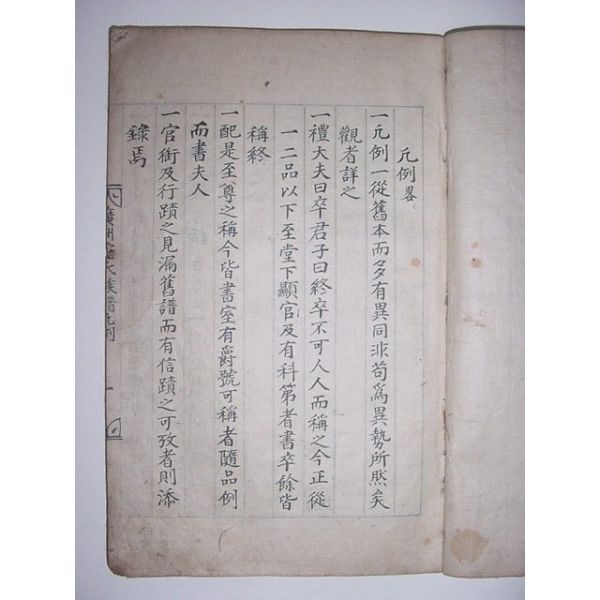 凡例畧
一凡例一從舊本而多有異同非苟爲異勢所然矣
觀者詳之
一禮大夫曰卒君子曰終卒不可人人而稱之今正從
一二品以下至堂下顯官及有科第者書卒餘皆
稱終
一配是至尊之稱今皆書室有爵號可稱者隨品例
而書夫人
一官銜及行蹟之見漏舊譜而有信蹟之可攷者則添
錄焉
廣州氏族譜凡例
一